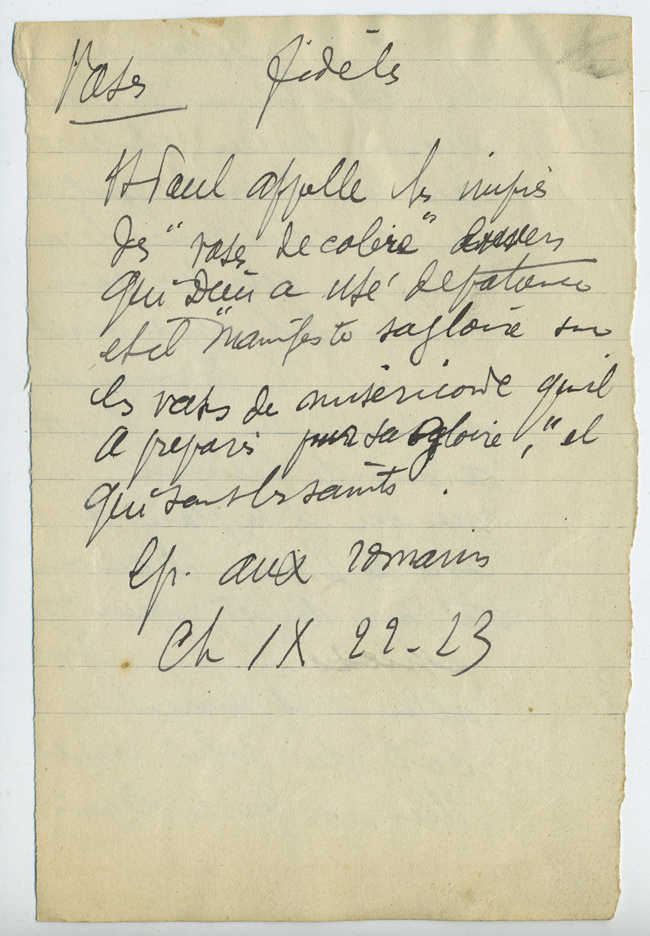 Vases fidèles
St Paul appelle les impies
des "vases de colère" envers
qui Dieu a usé de patience
et il "manifeste sa gloire sur
les vases de miséricorde qu'il
a préparés pour sa gloire," et
qui sont les saints.
Ep. aux romains
Ch IX 22-23